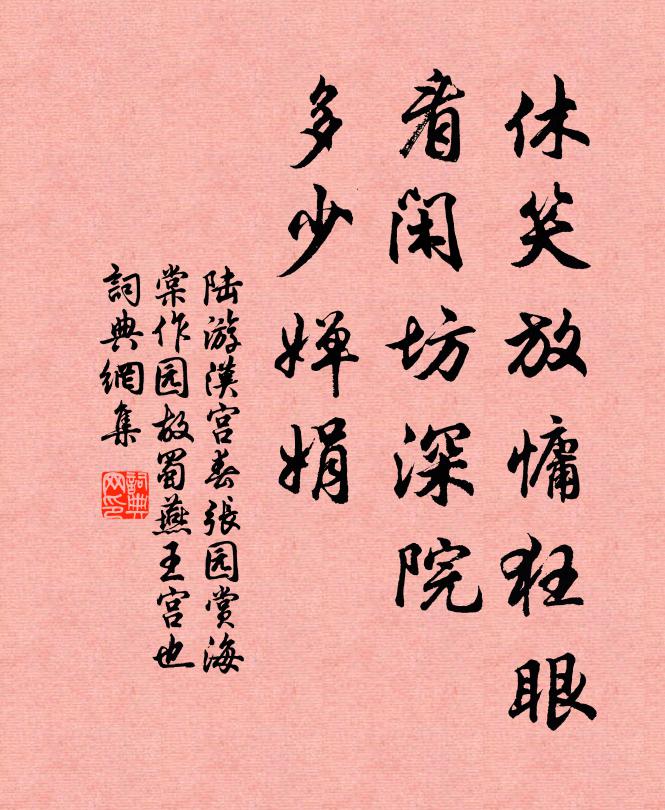 休笑放慵狂眼
看闲坊深院
多少婵娟
陆游漢宫春張园赏海
棠作园故蜀燕王宫也
詞典網集
詞典
网印